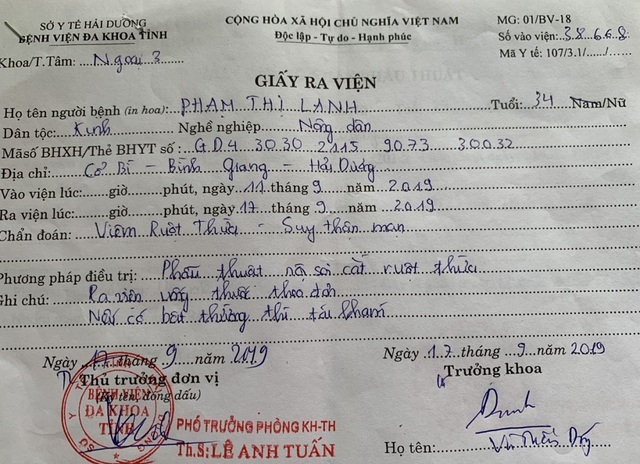 SỞ Y TẾ HẢI DƯƠNG
BỆNH VIỆN ĐA KHOA TỈNH
Khoa/T.Tâm: Ngoại 3
CỘNG HÒA XÃ HỘI CHỦ NGHĨA VIỆT NAM
Độc lập - Tự do - Hạnh phúc
MG: 01/BV-18
Số vào viện: 38668
Mã Y tế: 107/3.1/....../......
GIẤY RA VIỆN
Họ tên người bệnh (in hoa): PHẠM THỊ LANH Tuổi: 34 Nam/Nữ
Dân tộc: Kinh Nghề nghiệp Nông dân
Mãsố BHXH/Thẻ BHYT số: GD4 30.30 2115 9073 30032
Địa chỉ: Cổ Bì - Bình Giang - Hải Dương
Vào viện lúc:......giờ......phút, ngày 11 tháng 9 năm 2019
Ra viện lúc:......giờ......phút, ngày 17 tháng 9 năm 2019
Chẩn đoán: Viêm Ruột Thừa - Suy thận mạn
Phương pháp điều trị: Phẫu thuật nội soi cắt ruột thừa
Ghi chú: Ra viện uống thuốc theo đơn
Nếu có bất thường thì tái khám
Ngày 17 tháng 9 năm 2019
Thủ trưởng đơn vị
(Ký tên, đóng dấu)
BỆNH VIỆN
ĐA KHOA
TỈNH
PHÓ TRƯỞNG PHÒNG KH-TH
Th.S: LÊ ANH TUẤN
Ngày 17 tháng 9 năm 2019
Trưởng khoa
Họ tên: